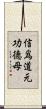 信為道元
功德母